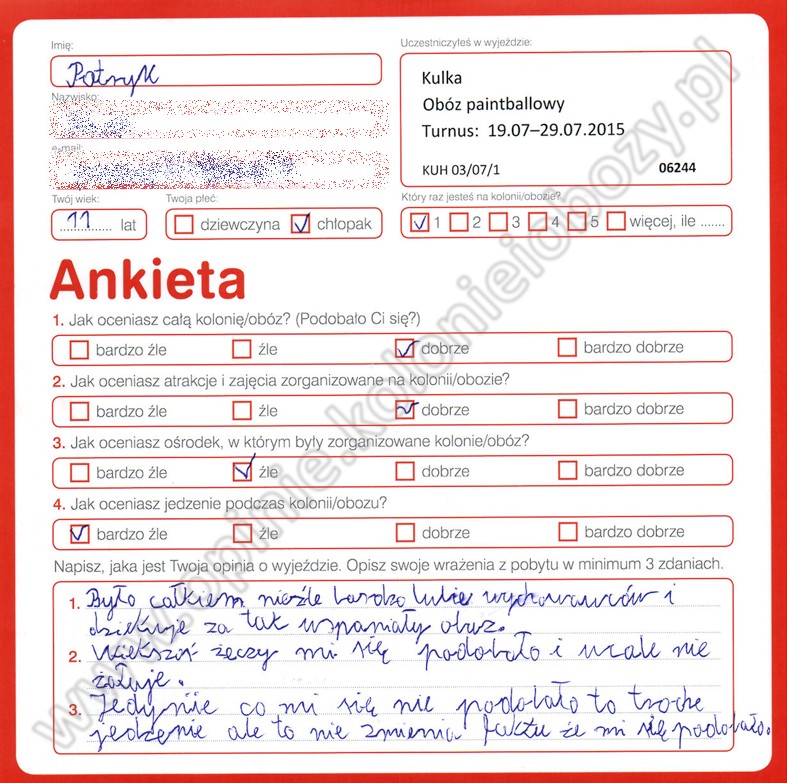 Imię:
Patryk
Nazwisko:
e-mail:
Twój wiek:
11 lat
Twoja płeć:
dziewczyna chłopak
Uczestniczyłeś w wyjeździe:
Kulka
Obóz paintballowy
Turnus: 19.07–29.07.2015
KUH 03/07/1 06244
Który raz jesteś na kolonii/obozie?
1 2 3 4 5 więcej, ile .......
Ankieta
1. Jak oceniasz całą kolonię/obóz? (Podobało Ci się?)
bardzo źle źle dobrze bardzo dobrze
2. Jak oceniasz atrakcje i zajęcia zorganizowane na kolonii/obozie?
bardzo źle źle dobrze bardzo dobrze
3. Jak oceniasz ośrodek, w którym były zorganizowane kolonie/obóz?
bardzo źle źle dobrze bardzo dobrze
4. Jak oceniasz jedzenie podczas kolonii/obozu?
bardzo źle źle dobrze bardzo dobrze
Napisz, jaka jest Twoja opinia o wyjeździe. Opisz swoje wrażenia z pobytu w minimum 3 zdaniach.
1. Było całkiem nieźle bardzo lubie wychowawców i
dziekuje za tak wspaniały obuz.
2. Wiekszoś żeczy mi się podobało i wcale nie
żałuje.
3. Jedynie co mi się nie podobało to troche
jedzenie ale to nie zmienia faktu że mi się podobało.
www.opinie.kolonieiobozy.pl